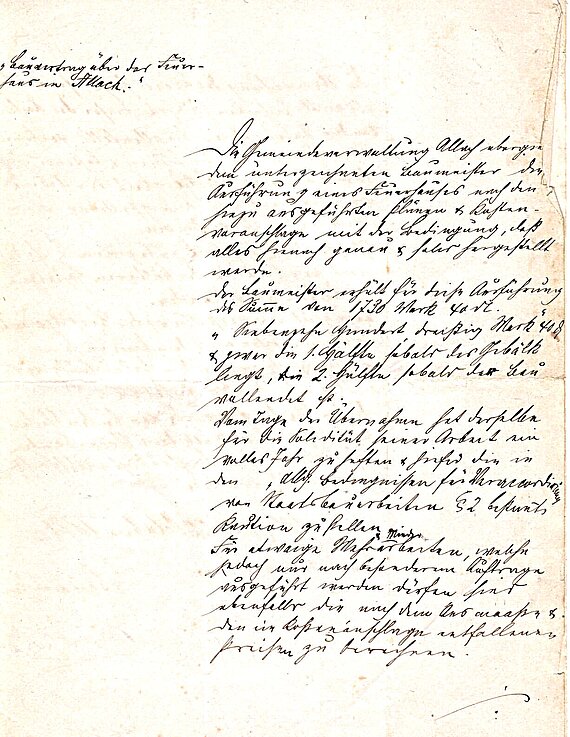 „Bauvertrag über das Feuer-
haus in Allach.“
Die Gemeindeverwaltung Allach
dem unterzeichneten Baumeister die
Ausführung eines Feuerhauses nach den
hiezu ausgeführten Plänen & Kosten-
voranschlage mit der Bedingung, daß
alles hienach genau & solid hergestellt
werde.
Der Baumeister erhält für diese Ausführung
die Summe von 1730 Mark 40 dl.
„Siebenzehn Hundert dreißig Mark“ 40 dl
& zwar die 1. Hälfte sobald das Gebälk
liegt, die 2. Hälfte sobald der Bau
vollendet ist.
Vom Tage der Übernahme hat derselbe
für die Solidität seiner Arbeit ein
volles Jahr zu haften & hiefür die in
den „Allg. Bedingnissen für
von Staatsbauarbeiten § 2 bestimmte
Kaution zu stellen.
Für etwaige Mehr & Minder arbeiten, welche
jedoch nur nach besonderem Auftrage
ausgeführt werden dürfen sind
ebenfalls die nach dem Ausmaaße &
den im Kostenanschlage entfallenen
Preisen zu berechnen.